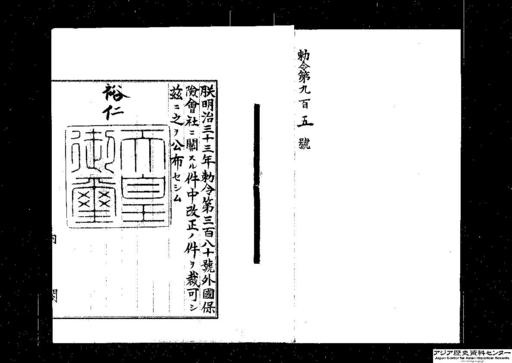 勅令第九百五號
朕明治三十三年勅令第三百八十號外國保
險會社ニ關スル件中改正ノ件ヲ裁可シ
茲ニ之ヲ公布セシム
裕仁
天皇
御璽
内閣
アジア歴史資料センター
Japan Center for Asian Historical Records